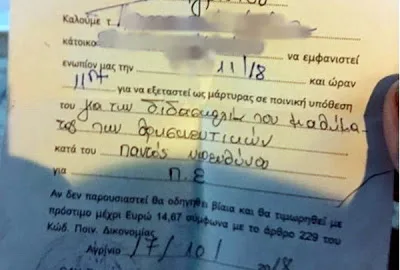 Καλούμε τ
κάτοικο να εμφανιστεί
ενωπίον μας την 11/18 και ώραν
11πμ για να εξεταστεί ως μάρτυρας σε ποινική υπόθεση
του για την διδασκαλία του μαθήμα-
τος των θρησκευτικών
κατά του παντός υπευθύνου
για Π.Ε
Αν δεν παρουσιαστεί θα οδηγηθεί βίαια και θα τιμωρηθεί με
πρόστιμο μέχρι Ευρώ 14,67 σύμφωνα με το άρθρο 229 του
Κώδ. Ποιν. Δικονομίας.
Αγρίνιο 17/10/